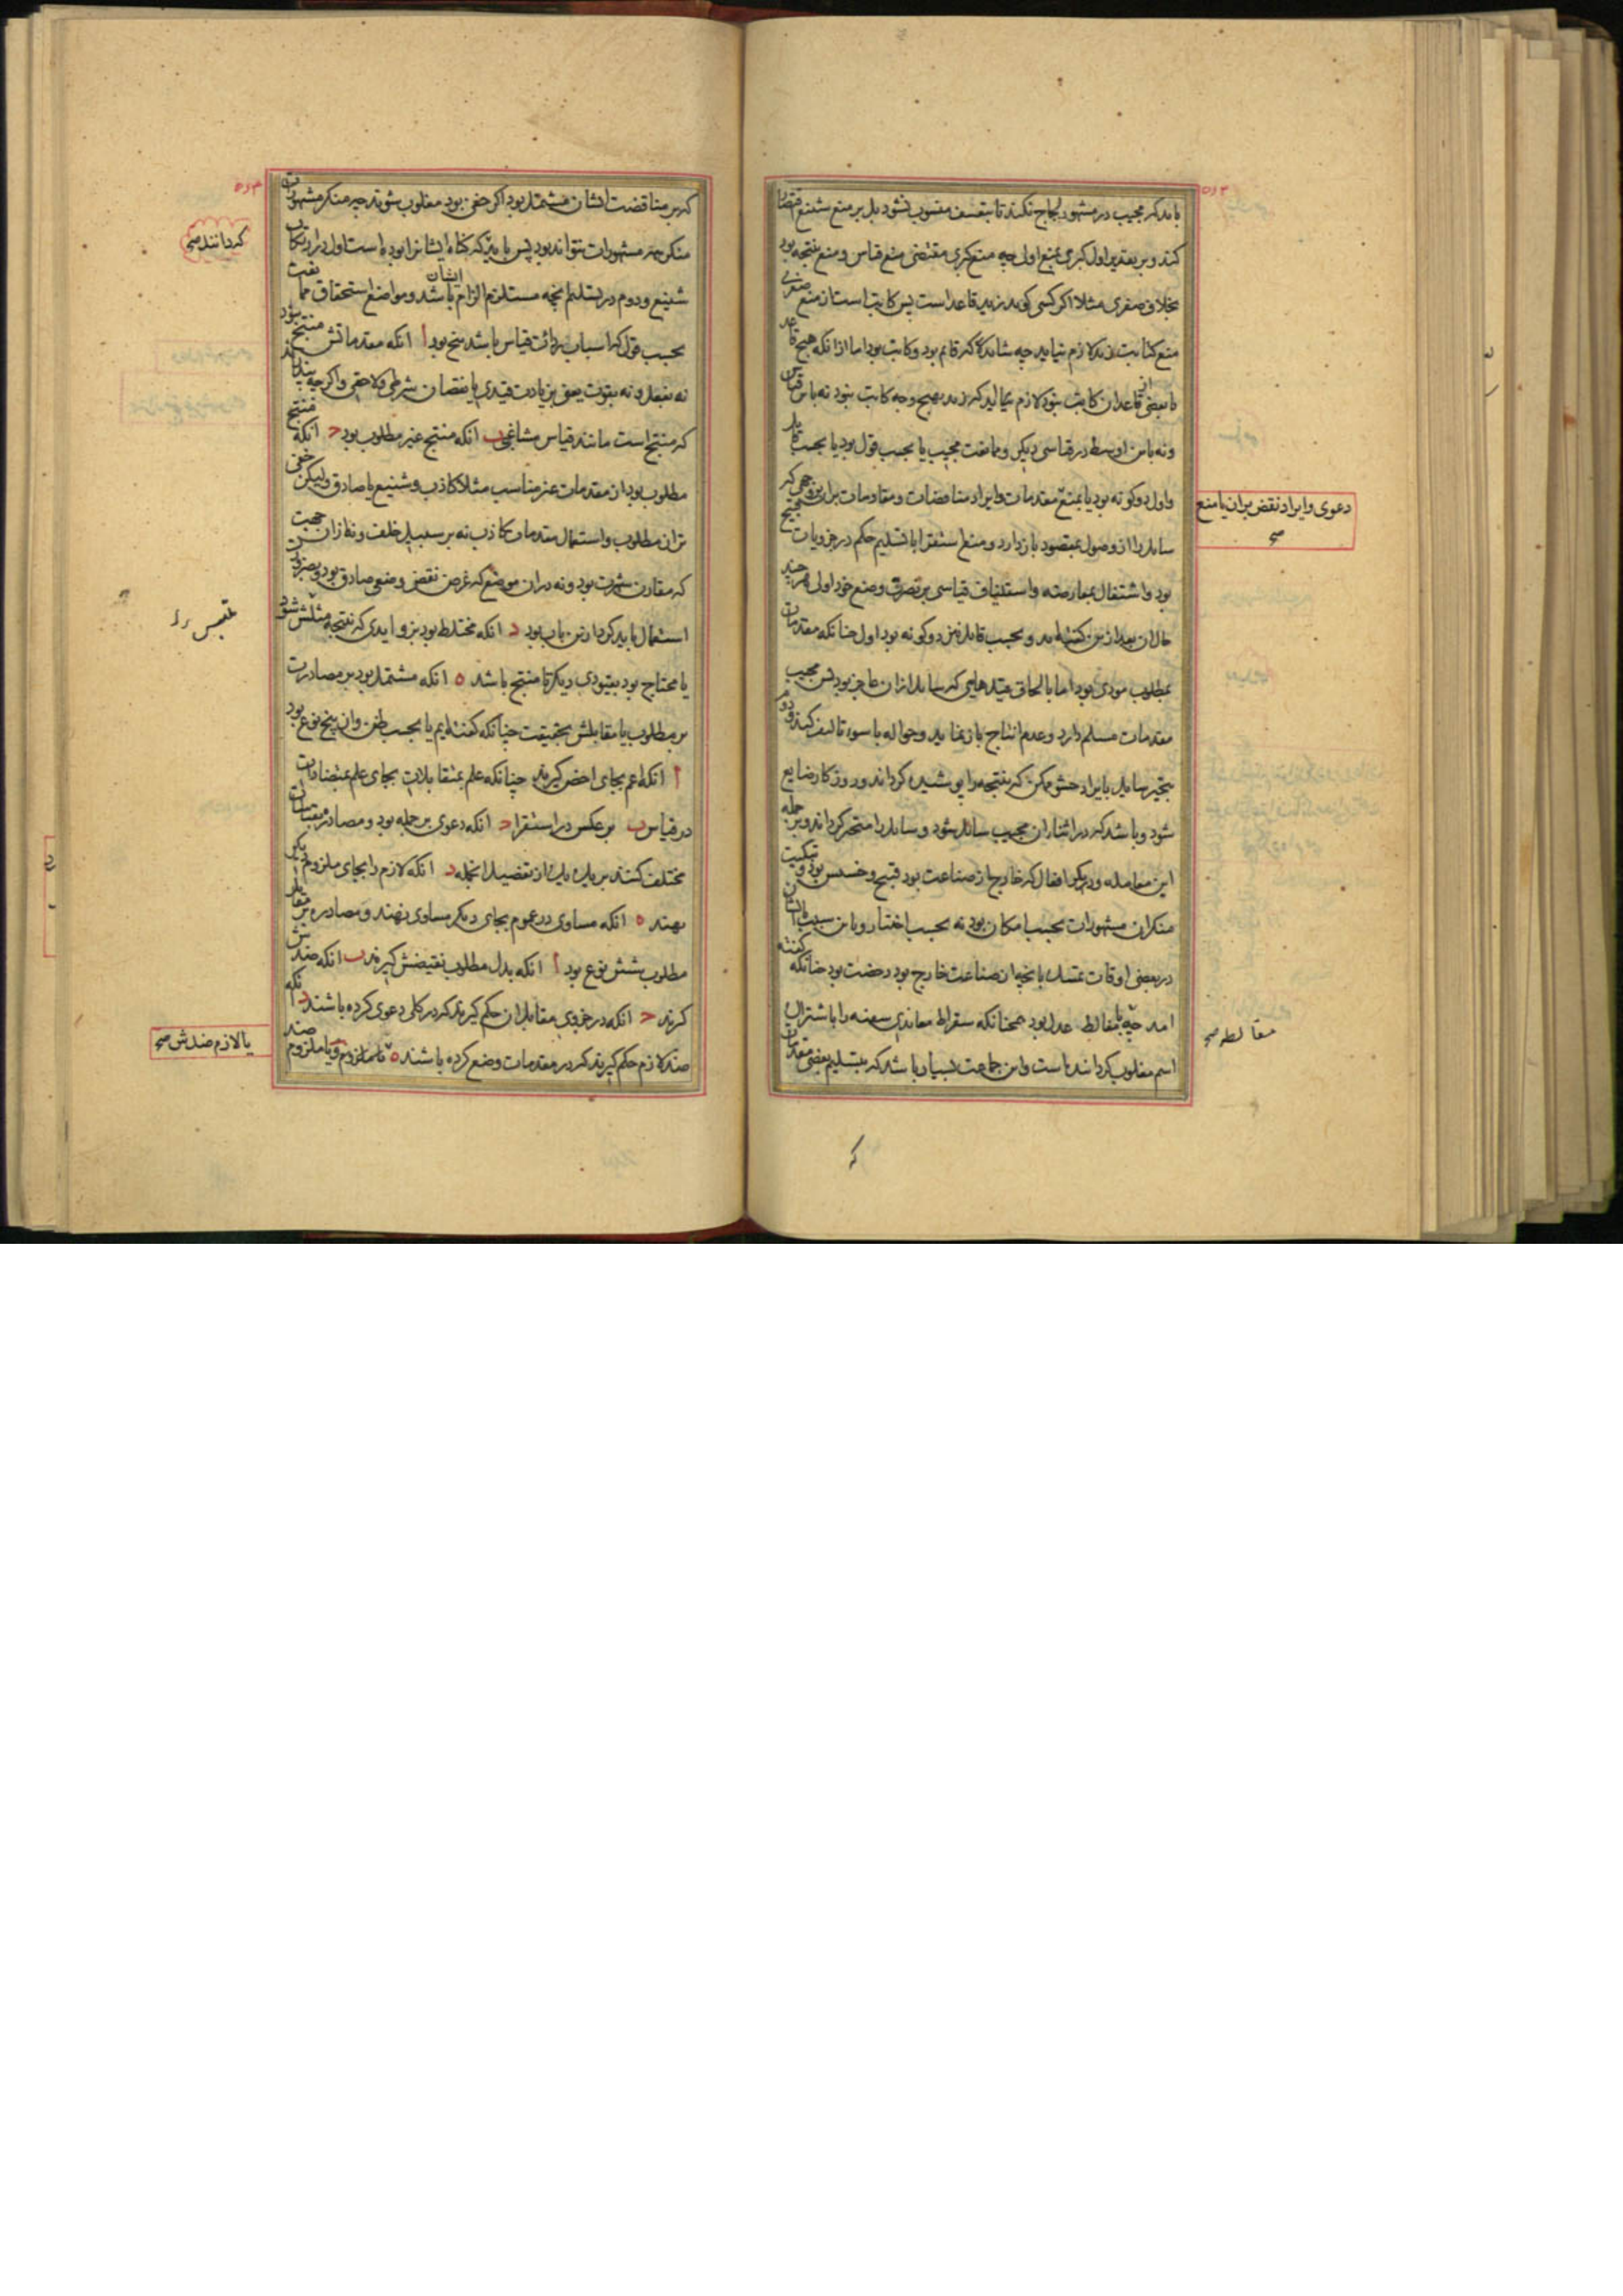 باید که مجیب در مشهود لجاج نکند تا بتعسف منسوب نشود بل بر منع شنیع اقتصار
کند و بر تقدیر اول کبری بمنع اولی چه منع کبری مقتضی منع قیاس و منع نتیجه بود
بخلاف صغری مثلا اگر کسی گوید زید قاعد است پس کاتب است از منع صغری
منع کتابت زید لازم نیاید چه شاید که قایم بود و کاتب بود اما از انکه هیچ قاعد
یا بعضی از قاعدان کاتب نبود لازم آید که زید بهیچ وجه کاتب نبود نه باین قیاس
و نه باین اوسط در قیاسی دیگر و ممانعت مجیب یا بحسب قول بود یا بحسب قایل
و اول دو گونه بود یا بمنع مقدمات و ایراد مناقضات و مقاومات بران وجهی که
سایل را از وصول بمقصود باز دارد و منع استقرا با تسلیم حکم در جزویات قبیح
بود و اشتغال بمعارضه و استیناف قیاسی بر نصرت وضع خود اولی هر چند
حال ان بعد ازین گفته اید و بحسب قایل نیز دو گونه بود اول چنانکه مقدمات
بمطلوب مودی بود اما بالحاق قیدهایی که سایل از ان عاجز بود پس مجیب
مقدمات مسلم دارد و عدم انتاج باز نماید و حواله با سوء تالیف کند و دوم
بتحیر سایل بایراد حشو ممکن که نتیجه را پوشیده گرداند و روزگار ضایع
شود و باشد که در اثناء ان مجیب سائل شود و سائل را متحیر گرداند و بر جمله
این معامله و دیگر افعال که خارج از صناعت بود قبیح و خسیس بود و تبکیت
منکران مشهورات بحسب امکان بود نه بحسب اختیار و باین سبب با ایشان
در بعضی اوقات تمسک بانچه از صناعت خارج بود رخصت بود چنانکه گفته
امد چه با مغالط عدل بود همچنانکه سقراط معاندی سفیه را باشتراک
اسم مغلوب گردانیده است و این جماعت بسیار باشد که بتسلیم بعضی مقدمات
دعوی و ایراد نقض بران یا منع
صح
مغالطه صح
که بر مناقضت ایشان مشتمل بود اگر خفی بود مغلوب شوند چه منکر مشهورات
منکر همه مشهورات نتواند بود پس باید که گناه ایشانرا بوده است اول در ارتکاب
شنیع و دوم در تسلیم انچه مستلزم الزام ایشان باشد و مواضع استحقاق ممانعت
بحسب قول که اسباب ردائت قیاس باشد پنج بود ا انکه مقدماتش منتج نبود
نه بفعل و نه بقوت یعنی بزیادت قیدی یا نقصان شرطی و لاحقی و اگر چه پندارند
که منتج است مانند قیاس مشاغبی ب انکه منتج غیر مطلوب بود ج انکه منتج
مطلوب بود از مقدمات غیر مناسب مثلا کاذب و شنیع یا صادق ولیکن خفی
تر از مطلوب و استعمال مقدمات کاذب نه بر سبیل خلف و نه از ان حجت
که مقارن شهرت بود و نه در ان موضع که غرض نقض وضعی صادق بود و بضرورت
استعمال باید کرد ازین باب بود د انکه مختلط بود بزوایدی که نتیجه مشوش شود
یا محتاج بود بقیودی دیگر تا منتج باشد ه انکه مشتمل بود بر مصادرت
بر مطلوب یا مقابلش بحقیقت چنانکه گفته ایم یا بحسب ظن و ان پنج نوع بود
ا انکه اعم بجای اخص گیرند چنانکه علم بمتقابلات بجای علم بمتضادات
در قیاس ب بر عکس در استقرا ج انکه دعوی بر جمله بود و مصادره بقیاسات
مختلف کنند بر یک یک از تفصیل انجمله د انکه لازم را بجای ملزوم
نهند ه انکه مساوی در عموم بجای دیگر مساوی نهند و مصادره بر مقابل
مطلوب شش نوع بود ا انکه بدل مطلوب نقیضش گیرند ب انکه ضدش
گیرند ج انکه در جزوی مقابل ان حکم گیرند که در کلی دعوی کرده باشند د انکه
ضد لازم حکم گیرند که در مقدمات وضع کرده باشند ه تا ملزوم و یا ملزوم ضد
گردانند صح
یا لازم ضدش صح